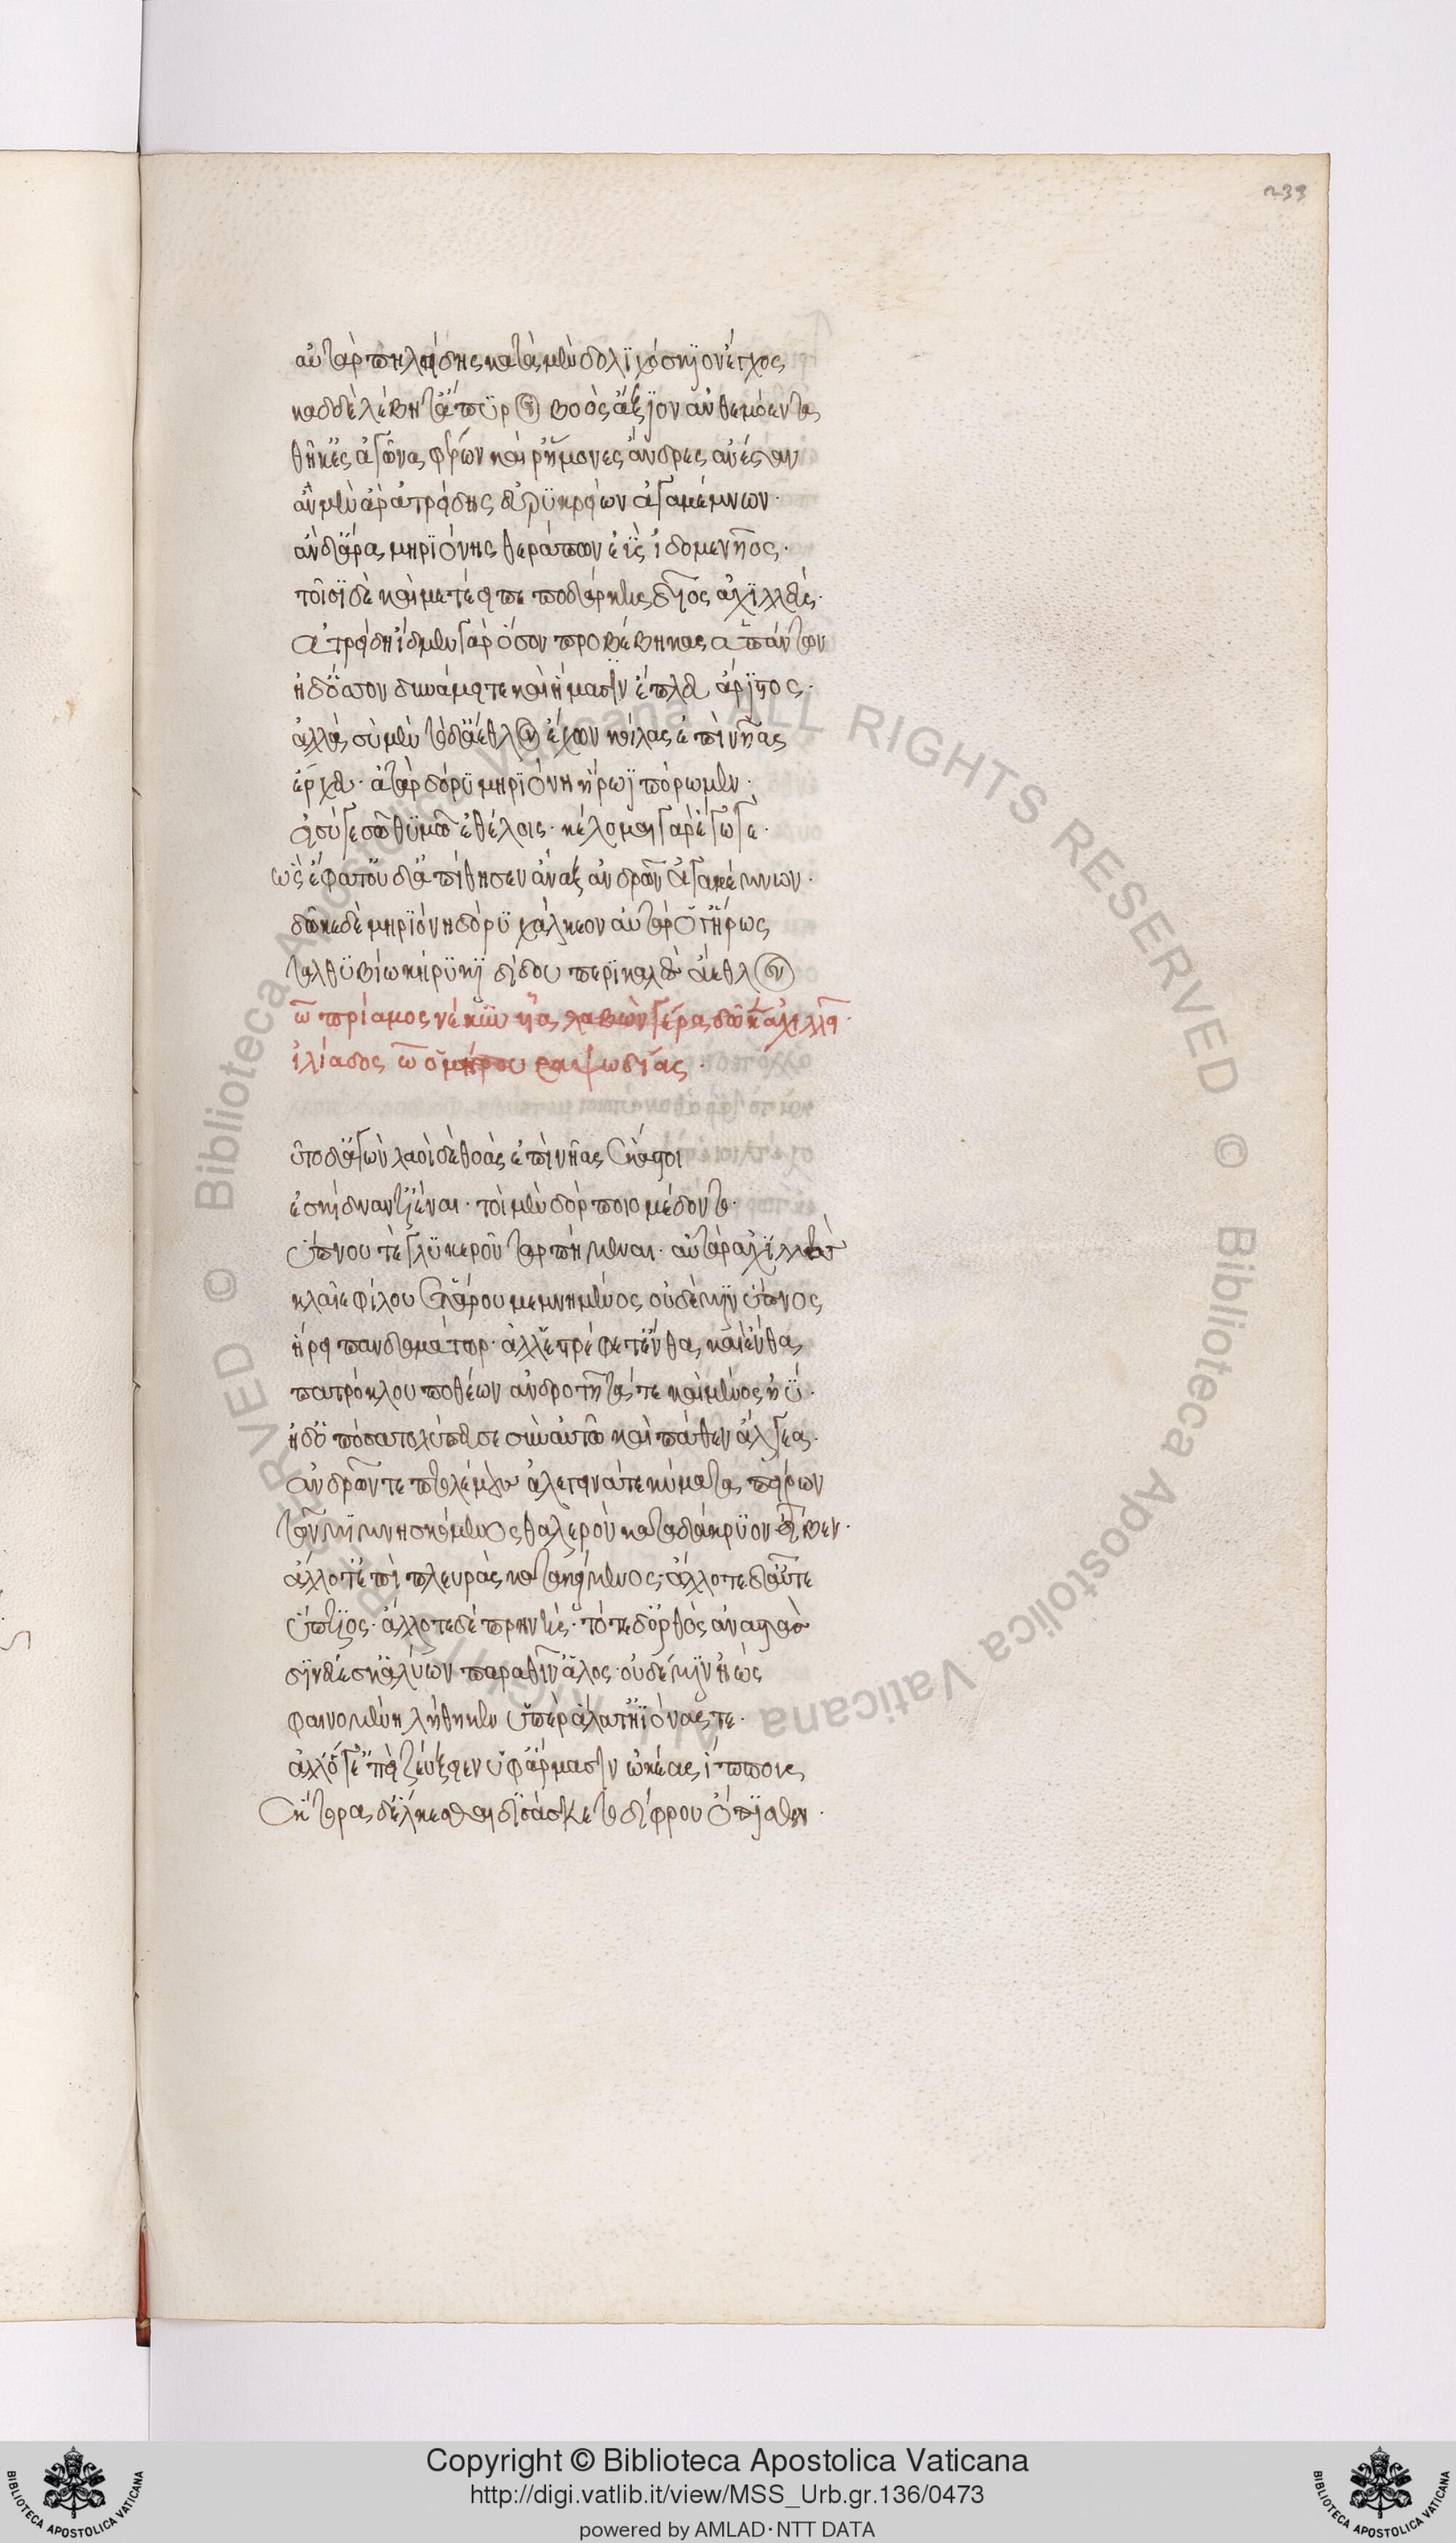 239
αὐτὰρ πηλείδης κατὰ μὲν δολϊχόσκϊον ἔγχος
καδδὲ λέβητ' ἄπϋρον βοὸς ἄξϊον ἀνθεμόεντα
θῆκ' ἐς ἀγῶνα φέρων καί ῥ' ἥμονες ἄνδρες ἀνέσταν
ἂν μὲν ἄρ' ἀτρείδης εὐρϋκρείων ἀγαμέμνων·
ἂν δ' ἄρα μηρϊόνης θεράπων ἐῢς ἰδομενῆος·
τοῖσϊ δὲ καὶ μετέειπε ποδάρκης δῖος ἀχϊλλεύς·
ἀτρείδη ἴδμεν γὰρ ὅσον προβέβηκας ἁπάντων
ἠδ' ὅσσον δυνάμει τε καὶ ἥμασϊν ἔπλευ ἄρϊστος·
ἀλλὰ σὺ μὲν τόδ' ἄεθλον ἔχων κοίλας ἐπὶ νῆας
ἔρχευ· ἀτὰρ δόρϋ μηρϊόνη ἥρωϊ πόρωμεν·
εἰ σύ γε σῶ θϋμῶ ἐθέλοις· κέλομαι γὰρ ἔγωγε·
ὣς ἔφατ' οὐδ' ἀπίθησεν ἄναξ ἀνδρῶν ἀγαμέμνων·
δῶκε δὲ μηρϊόνη δόρϋ χάλκεον αὐτὰρ ὅγ' ἥρως
ταλθϋβίω κήρϋκϊ δίδου περϊκαλὲς ἄεθλον
ὦ πρίαμος νέκϋν υἷα λαβὼν γέρα δῶκ' ἀχιλλῆϊ·
ἰλιάδος ὦ ὁμήρου ραψωδίας·
λῦτο δ' ἀγὼν λαοὶ δὲ θοὰς ἐπὶ νῆας ἕκαστοι
ἐσκίδναντ' ἰέναι· τοὶ μὲν δόρποιο μέδοντο·
ὕπνου τὲ γλϋκεροῦ ταρπήμεναι· αὐτὰρ ἀχϊλλεὺς
κλαῖε φίλου ἑτάρου μεμνημένος οὐδέ μϊν ὕπνος
ἥρει πανδαμάτωρ· ἀλλ' ἐστρέφετ' ἔνθα καὶ ἔνθα
πατρόκλου ποθέων ἀνδροτῆτά τε καὶ μένος ἠΰ·
ἠδ' ὁπόσα τολύπευσε σὺν αὐτῶ καὶ πάθεν ἄλγεα·
ἀνδρῶν τε πτολέμους ἀλεγεινά τε κύματα πείρων
τῶν μϊμνησκόμενος θαλερὸν κατὰ δάκρϋον εἶβεν·
ἄλλοτ' ἐπὶ πλευρὰς κατακείμενος· ἄλλοτε δ' αὖτε
ὕπτϊος· ἄλλοτε δὲ πρηνής· τότε δ' ὀρθὸς ἀναστὰς
δϊνεύεσκ' ἀλύων παρα θῖν' ἁλὸς· οὐδέ μϊν ἠὼς
φαινομένη λήθηκεν ὑπεὶρ ἅλα τ' ἠϊόνας τε·
ἀλλ' ὅγ' ἐπεὶ ζεύξειεν ὑφ' ἅρμασϊν ὠκέας ἵππους
ἕκτορα δ' ἕλκεσθαι δϊσάσκετο δίφρου ὄπϊσθεν·
Copyright © Biblioteca Apostolica Vaticana
http://digi.vatlib.it/view/MSS_Urb.gr.136/0473
powered by AMLAD·NTT DATA